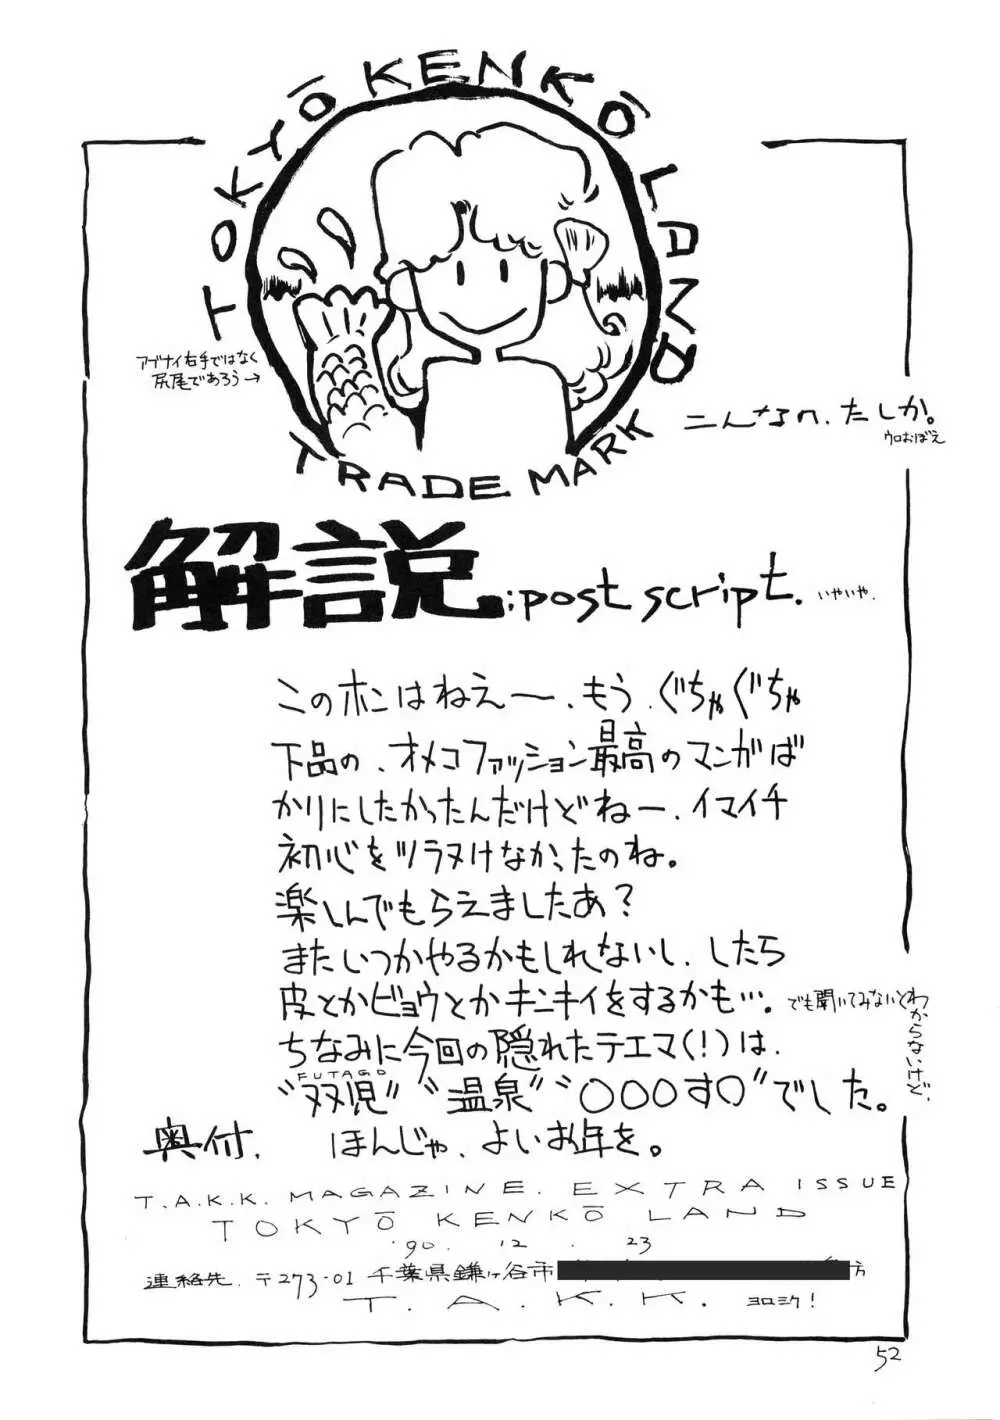 TOKYŌ KENKŌ LAND
TRADE MARK
アブナイ右手ではなく
尻尾であろう→
こんなの、たしか。
ウロおぼえ
解説;post script.
いやいや.
このホンはねえー、もう、ぐちゃぐちゃ
下品の、オメコファッション最高のマンガば
かりにしたかったんだけどねー、イマイチ
初心をツラヌけなかったのね。
楽しんでもらえましたあ?
またいつかやるかもしれないし、したら
皮とかビョウとかキンキイをするかも…。
でも聞いてみないとわからないけど、
ちなみに今回の隠れたテエマ(!)は、
FUTAGO
“双児”“温泉”“○○○す○”でした。
奥付.
ほんじゃ、よいお年を。
T.A.K.K. MAGAZINE. EXTRA ISSUE
TOKYŌ KENKŌ LAND
'90. 12. 23
連絡先. 〒273-01 千葉県鎌ヶ谷市
方
T.A.K.K. ヨロシク!
52